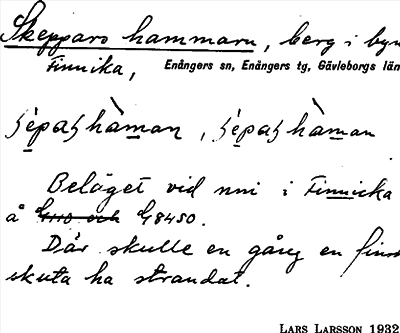 Skeppars hammarn, berg i byn
Finnika, Enångers sn, Enångers tg, Gävleborgs län
Beläget vid nni i Finnicka
å G8450.
Där skulle en gång en finsk
skuta ha strandat.
LARS LARSSON 1932